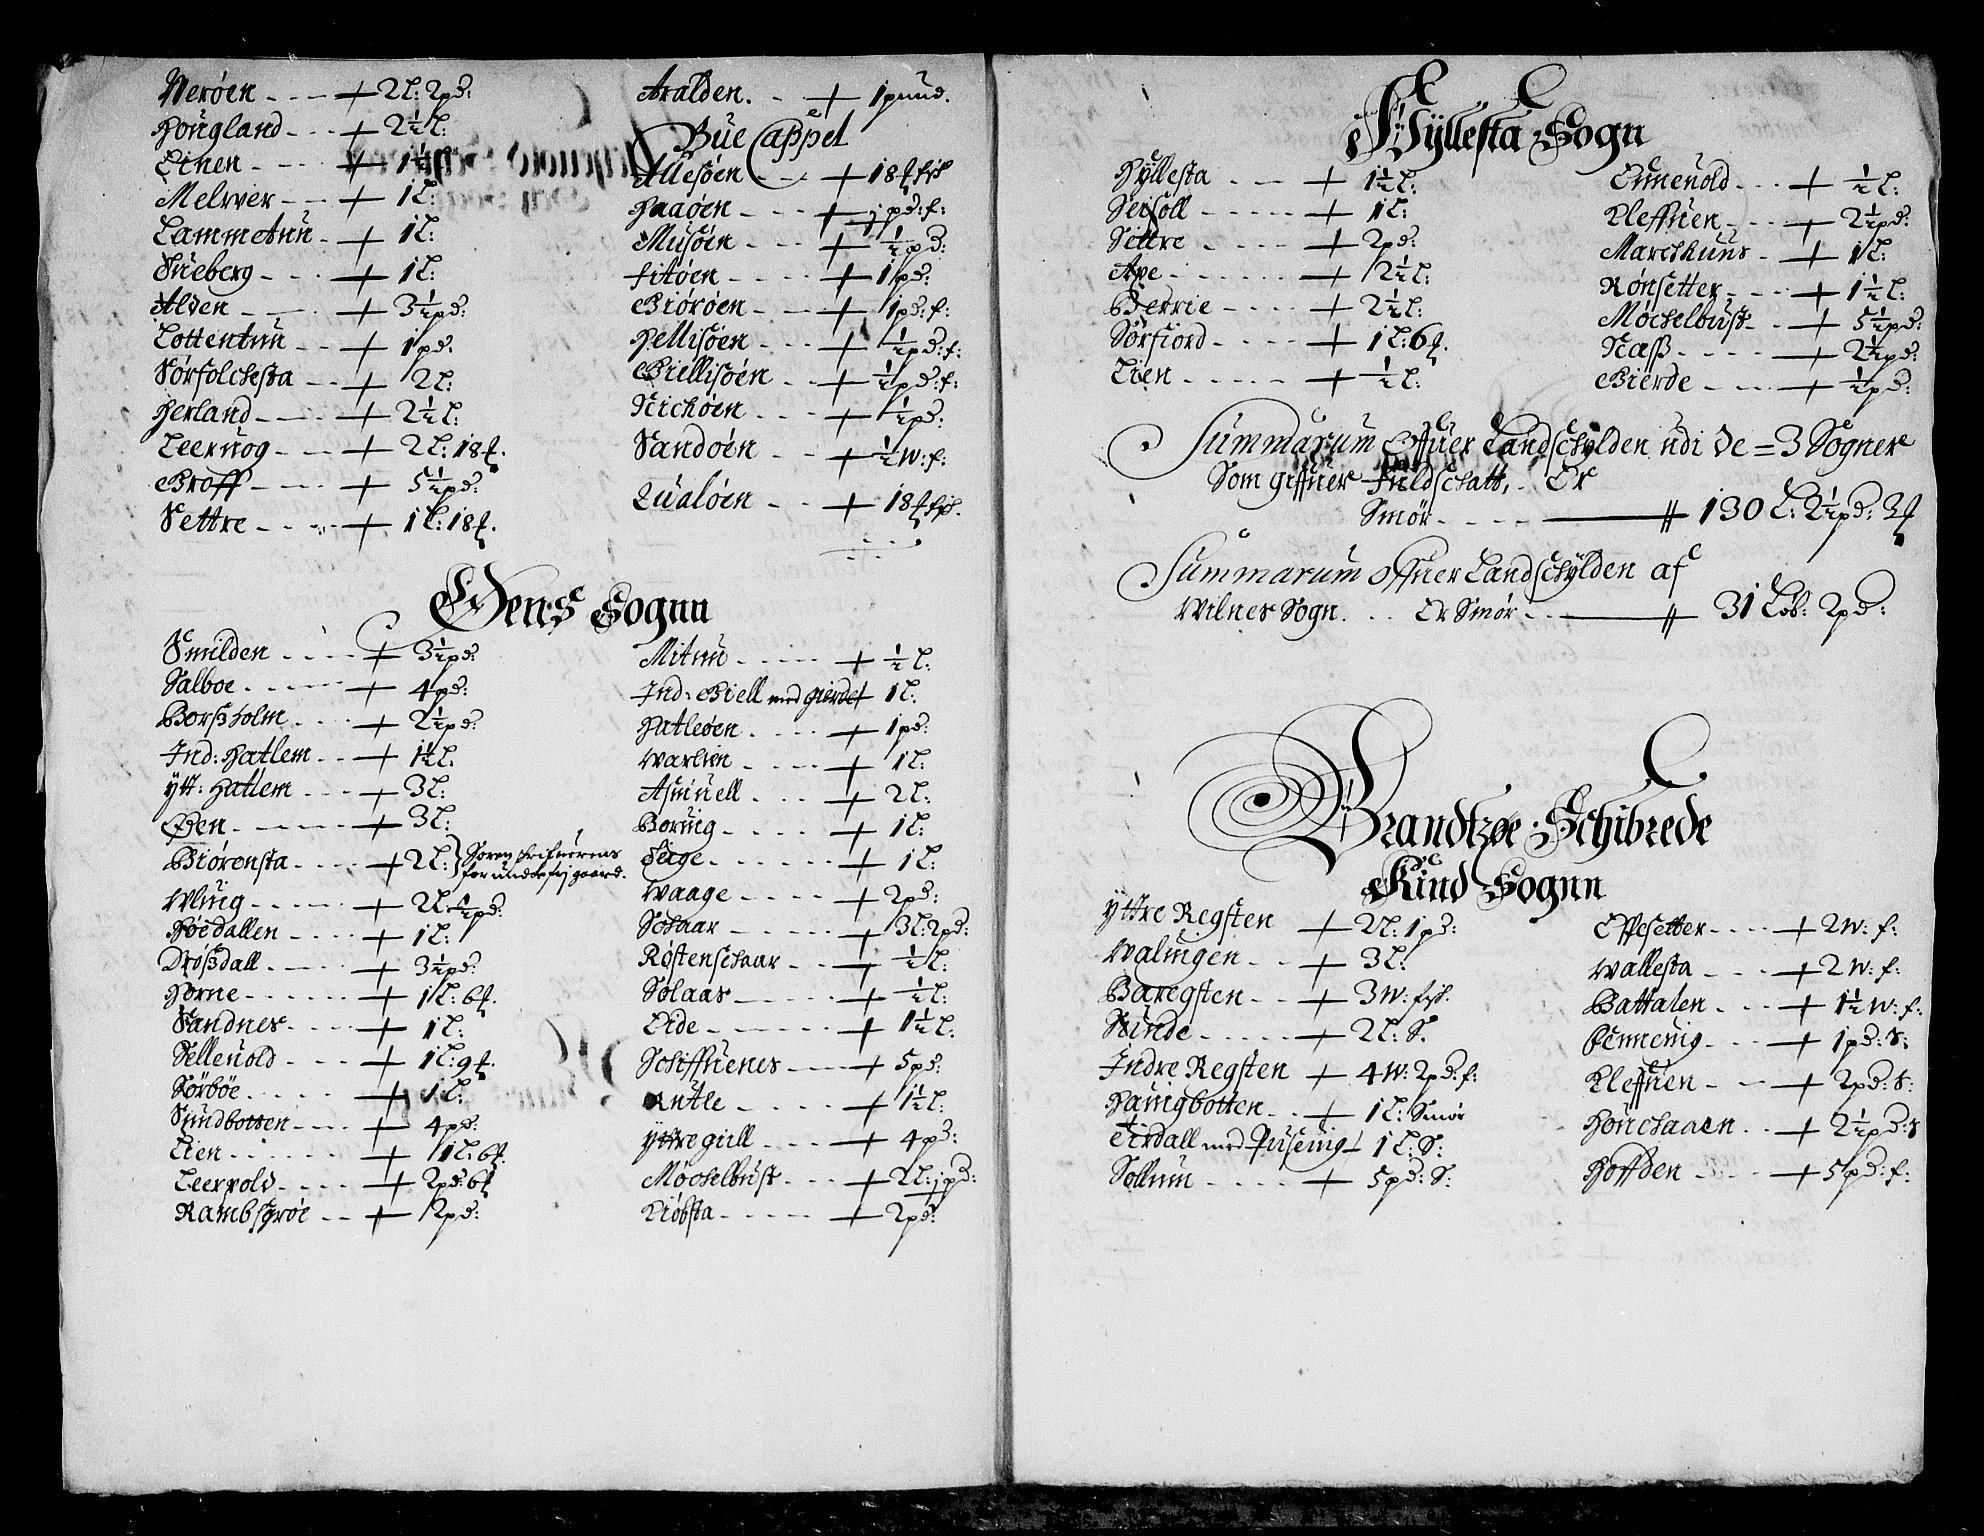 Nerøen - - - + 2 L: 2 pd:
Hougland - - - + 2½ L:
Linen - - - + 1½ L:
Melvver - - + 1 L:
Lammetun - + 1 L:
Sneberg - - - + 1 L:
Alden - - - + 3½ pd:
Lottentun - - + 1 pd:
Sørfolchesta - - + 2 L:
Herland - - - + 2½ L:
Leernog - - - + 2 L: 18
Groff - - - + 5½ pd:
Settre - - - + 1 L: 18
Aralden. - + 1 pund.
Bue Cappel
Allesøen - - + 18 fisk
Haaøen - - - + j pd: f:
Musøen - - - + ½ pd:
Fitøen - - - + 1 pd:
Giørøen - - - + 1 pd: f:
Hellisøen - - - + ½ pd: f:
Giellisøen - - + ½ pd: f:
Nichøen - - - + ½ pd:
Sandøen - - + ½ W: f:
Lualøen - - + 18 fisk.
Øens Sognn
Smilden - - - + 3½ pd:
Salboe - - - + 4 pd:
Borsholm - - - + 2½ pd:
Ind: Hatlem - - + 1½ L:
Ytt: Hatlem - - - + 3 L:
Øen - - - + 3 L:
Biørensta - - - + 2 L: Soren schrifuerens
for undersij gaard.
Wlvig - - - + 2 L ½ pd:
Høedallen - - - + 1 L:
Drøsdall - - - + 3½ pd:
Horne - - - + 1 L: 6
Sandnes - - - + 1 L:
Selleuold - - - + 1 L: 9
Sørbøe - - - + 1 L:
Sundbotten - - - + 4 pd:
Lien - - - + 1 L: 6
Leervold - - - + 2 pd: 6
Rambsgrøe - - + 2 pd:
Mitnu - - - + ½ L:
Ind: Giell med gierdet 1 L:
Hatleøen - - - + 1 pd:
Warlien - - - + 1 L:
Asnuell - - - + 2 L:
Boring - - - + 1 L:
Feige - - - + 1 L:
Waage - - - + 2 pd:
Solaar - - - + 3 L: 2 pd:
Røstenschaar - - + ½ L:
Solaas - - - + ½ L:
Eide - - - + 1½ L:
Schiffuenes - - - + 5 pd:
Rutle - - - + 1½ L:
Yttregill - - - + 4 pd:
Møchelbust - - - + 2 L: j pd:
Liøbsta - - - + 2 pd:
Hyllesta Sogn
Hyllesta - - - + 1½ L:
Seisøll - - - + 1 L:
Sittre - - - + 2 pd:
Axe - - - + 2½ L:
Berrie - - - + 2½ L:
Sørfiord - - - + 1 L: 6
Lien - - - + ½ L:
Ennenold - - - + ½ L:
Kleffuen - - - + 2½ pd:
Marchhuus - + 1 L:
Rønsetter - - - + 1½ L:
Møchelbust - - + 5½ pd:
Næss - - - + 2½ pd:
Gierde - - - + ½ pd:
Summarum Offuer Landschylden udi de = 3 Sogner
Som giffuer Fuldschatt, Er
Smør - - - 130 L: 2½ pd: 3
Summarum Offuer Landschylden af
Wilnes Sogn. . . Er Smør - - 31 Løb: 2 pd:
Brandtzøe Schibrede
Kind Sognn
Yttre Regsten + 2 L: 1 pd:
Walvigen - - + 3 L:
Baregsten - - + 3 W: fisk.
Stunde - - - + 2 L: S.
Indre Regsten + 4 W: 2 pd: f:
Havigbotten - - + 1 L: Smør
Eirdall med Husevig + 1 L: S:
Sollum - - - + 5 pd: S:
Essesetter - - - + 2 W: f:
Wallesta - - - + 2 W: f:
Battalen - - - + 1½ W: f:
Fennevig - - - + 1 pd: S:
Kleffuen - - - + 2 pd: S:
Houchaaen - - + 2½ pd: S
Hoffden - - - + 5 pd: f: